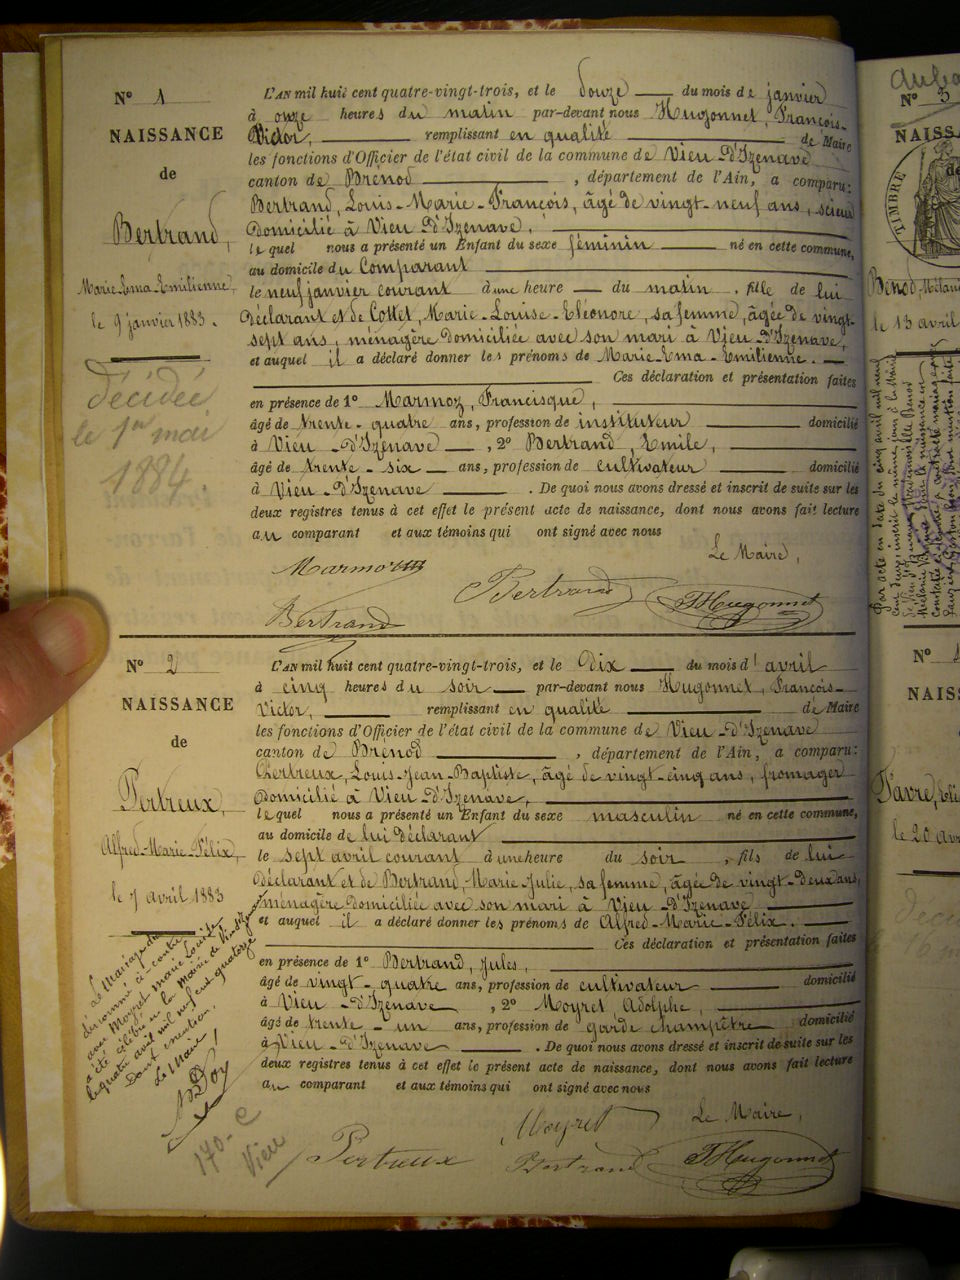 N° 1
NAISSANCE
de
Bertrand,
Marie-Ema-Emilienne,
le 9 janvier 1883.
décédée
le 1er mai
1884
L'AN mil huit cent quatre-vingt-trois, et le douze du mois de janvier
à onze heures du matin par-devant nous Hugonnet, François-
Victor, remplissant en qualité de Maire
les fonctions d'Officier de l'état civil de la commune de Vieu-d'Izenave
canton de Brénod, département de l'Ain, a comparu:
Bertrand, Louis-Marie-François, âgé de vingt-neuf ans, scieur
domicilié à Vieu-d'Izenave,
lequel nous a présenté un Enfant du sexe féminin né en cette commune,
au domicile du Comparant
le neuf janvier courant à une heure du matin, fille de lui
déclarant et de Collet, Marie-Louise-Eléonore, sa femme, âgée de vingt-
sept ans, ménagère domiciliée avec son mari à Vieu-d'Izenave,
et auquel il a déclaré donner les prénoms de Marie-Ema-Emilienne.
Ces déclaration et présentation faites
en présence de 1° Marmoz, Francisque,
âgé de trente-quatre ans, profession de instituteur domicilié
à Vieu-d'Izenave, 2° Bertrand, Emile,
âgé de trente-six ans, profession de cultivateur domicilié
à Vieu-d'Izenave. De quoi nous avons dressé et inscrit de suite sur les
deux registres tenus à cet effet le présent acte de naissance, dont nous avons fait lecture
au comparant et aux témoins qui ont signé avec nous
Le Maire,
Marmoz Bertrand
Bertrand FHugonnet
N° 2
NAISSANCE
de
Pertreux,
Alfred-Marie-Félix,
le 7 avril 1883
Le Mariage du
dénommé ci-contre
avec Moyret Marie Louise
a été célébré en la Mairie de
le quatre avril mil neuf cent quatorze
Dont mention,
Le Maire,
170-C
Vieu
L'AN mil huit cent quatre-vingt-trois, et le dix du mois d'avril
à cinq heures du soir par-devant nous Hugonnet, François-
Victor, remplissant en qualité de Maire
les fonctions d'Officier de l'état civil de la commune de Vieu-d'Izenave
canton de Brénod, département de l'Ain, a comparu:
Pertreux, Louis-Jean-Baptiste, âgé de vingt-cinq ans, fromager
domicilié à Vieu-d'Izenave,
lequel nous a présenté un Enfant du sexe masculin né en cette commune,
au domicile de lui déclarant
le sept avril courant à une heure du soir, fils de lui
déclarant et de Bertrand, Marie-Julie, sa femme, âgée de vingt-deux ans,
ménagère domiciliée avec son mari à Vieu-d'Izenave
et auquel il a déclaré donner les prénoms de Alfred-Marie-Félix.
Ces déclaration et présentation faites
en présence de 1° Bertrand, Jules,
âgé de vingt-quatre ans, profession de cultivateur domicilié
à Vieu-d'Izenave, 2° Moyret, Adolphe,
âgé de trente-un ans, profession de garde champêtre domicilié
à Vieu-d'Izenave. De quoi nous avons dressé et inscrit de suite sur les
deux registres tenus à cet effet le présent acte de naissance, dont nous avons fait lecture
au comparant et aux témoins qui ont signé avec nous
Moyret Le Maire,
Pertreux Bertrand FHugonnet
N° 3
NAISS
TIMBRE
Benod, Mélani
le 13 avril
N° 4
NAIS
Favre,
le 20 avri